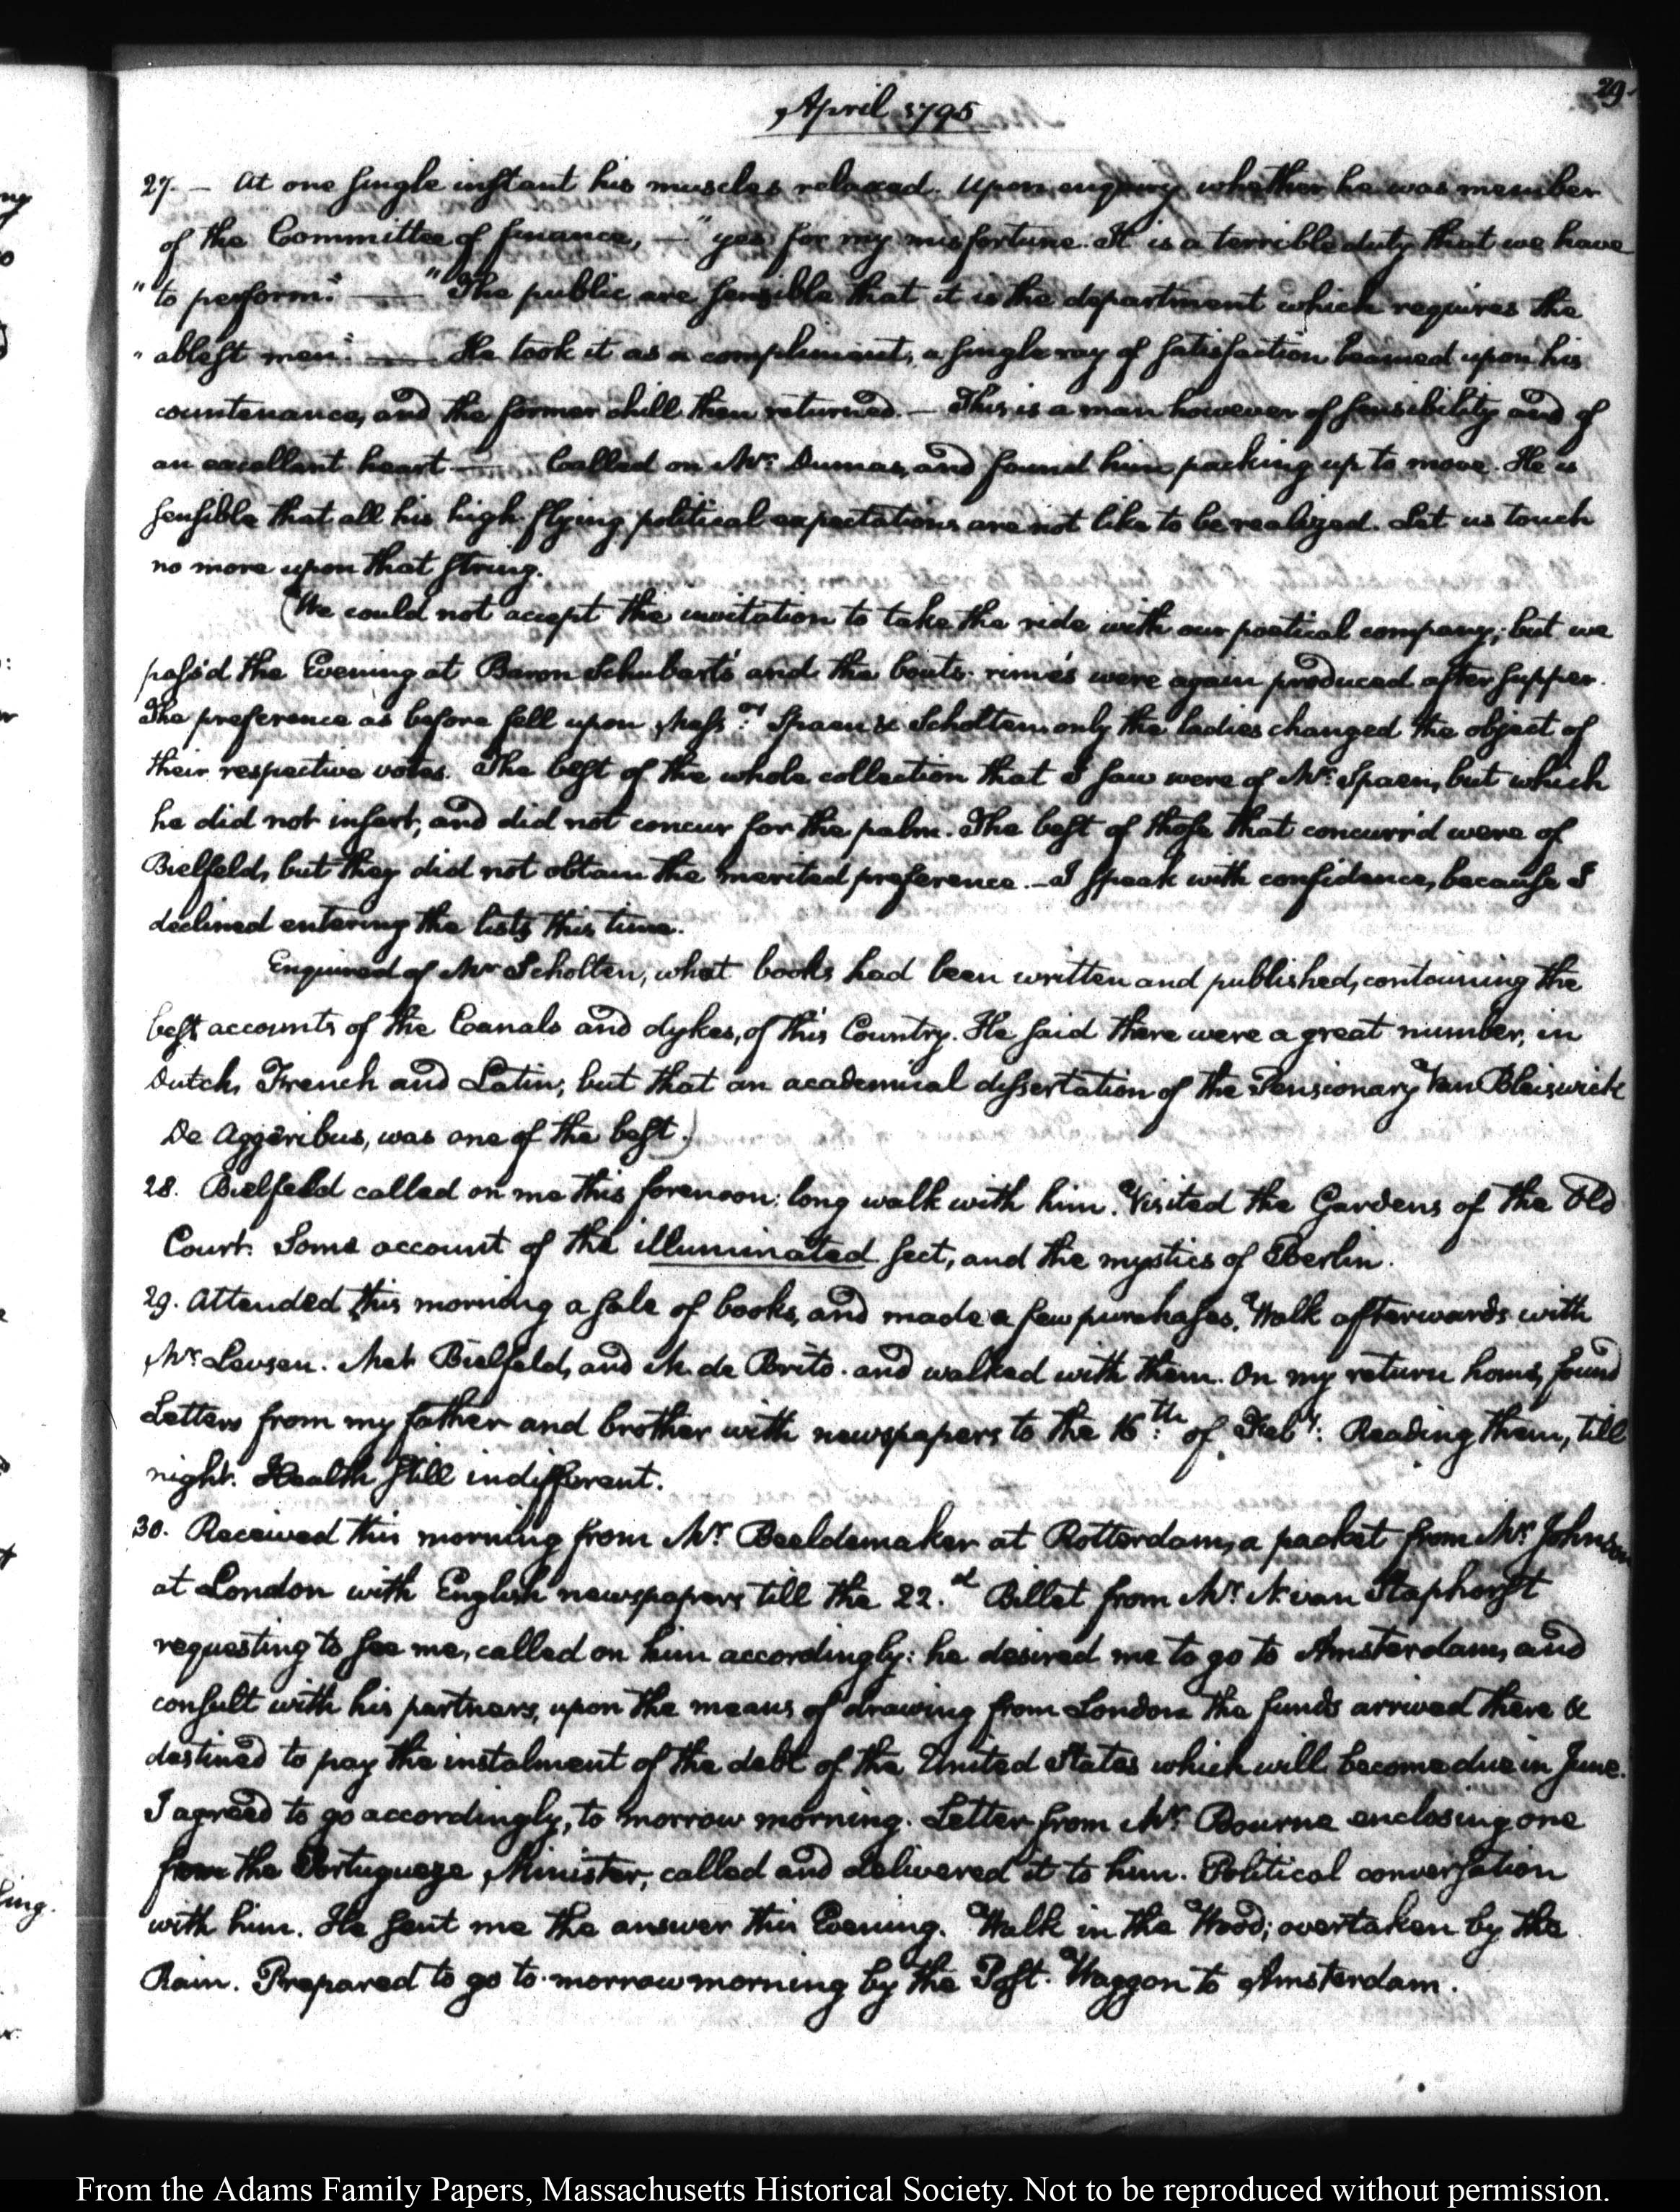 29.
April 1795
27. — At one single instant his muscles relaxed. Upon enquiry whether he was member
of the Committee of finance, — "yes for my misfortune. It is a terrible duty that we have
"to perform." — "The public are sensible that it is the department which requires the
"ablest men." — He took it as a compliment, a single ray of satisfaction beamed upon his
countenance, and the former chill then returned. — This is a man however of sensibility and of
an excellent heart — Called on Mr. Dumas, and found him packing up to move. He is
sensible that all his high flying political expectations are not like to be realized. Let us touch
no more upon that string.
(We could not accept the invitation to take the ride with our poetical company; but we
pass'd the Evening at Baron Schubart's and the bouts-rimés were again produced after supper.
The preference as before fell upon Mess:rs Spaen & Scholten only the ladies changed the object of
their respective votes. The best of the whole collection that I saw were of Mr. Spaen, but which
he did not insert, and did not concur for the palm. The best of those that concurr'd were of
Bielfeld, but they did not obtain the merited preference. — I speak with confidence, because I
declined entering the lists this time.
Enquired of Mr Scholten, what books had been written and published, containing the
best accounts of the Canals and dykes, of this Country. He said there were a great number, in
Dutch, French and Latin; but that an academical dissertation of the Pensionary Van Bleiswick
De Aggeribus, was one of the best.)
28. Bielfeld called on me this forenoon: long walk with him. Visited the Gardens of the Old
Court. Some account of the illuminated sect, and the mystics of Berlin.
29. Attended this morning a sale of books, and made a few purchases. Walk afterwards with
Mr. Levsen. Met Bielfeld, and M. de Brito. and walked with them. On my return home, found
Letters from my father and brother with newspapers to the 16:th of Feby: Reading them, till
night. Health still indifferent.
30. Received this morning from Mr. Beeldemaker at Rotterdam, a packet from Mr. Johnson
at London with English newspapers till the 22.d Billet from Mr. N. van Staphorst
requesting to see me, called on him accordingly: he desired me to go to Amsterdam, and
consult with his partners, upon the means of drawing from London the funds arrived there &
destined to pay the instalment of the debt of the United States which will become due in June.
I agreed to go accordingly, to morrow morning. Letter from Mr. Bourne enclosing one
from the Portugueze Minister, called and delivered it to him. Political conversation
with him. He sent me the answer this Evening. Walk in the Wood; overtaken by the
Rain. Prepared to go to-morrow morning by the Post-Waggon to Amsterdam.
From the Adams Family Papers, Massachusetts Historical Society. Not to be reproduced without permission.